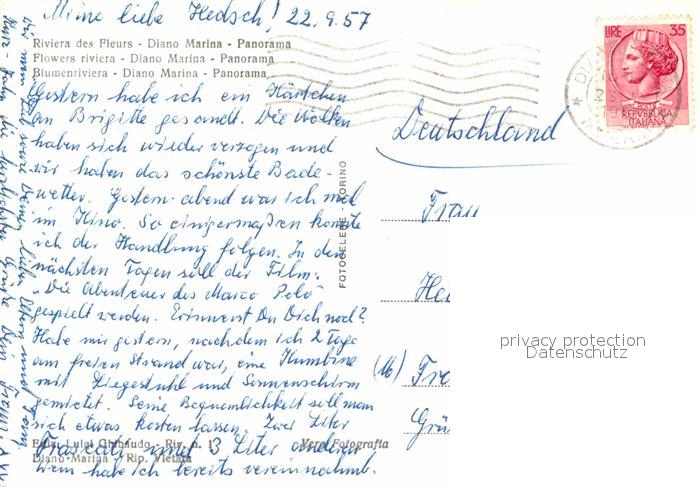 Meine liebe Hedsch! 22.9.57
Riviera des Fleurs - Diano Marina - Panorama
Flowers riviera - Diano Marina - Panorama
Blumenriviera - Diano Marina - Panorama
Gestern habe ich ein Kärtchen
an Brigitte gesandt. Die Wolken
haben sich wieder verzogen und
wir haben das schönste Bade-
wetter. Gestern abend war ich mal
im Kino. So einigermaßen konnte
ich der Handlung folgen. In den
nächsten Tagen soll der Film:
"Die Abenteuer des Marco Polo"
gespielt werden. Erinnerst Du Dich noch?
Habe mir gestern, nachdem ich 2 Tage
am freien Strand war, eine Kumbine
mit Liegestuhl und Sonnenschirm
gemietet. Seine Bequemlichkeit soll man
sich etwas kosten lassen. Zwei Liter
Frascati und 3 Liter anderen
Wein habe ich bereits vereinnahmt.
Ediz. Luigi Ghibaudo - Riv. n. 1
Diano Marina - Rip. Vietata
Vera Fotografia
FOTOCELERE TORINO
LIRE 35
REPVBBLICA
ITALIANA
Deutschland
Frau
(16) Fra
Grü
privacy protection
Datenschutz